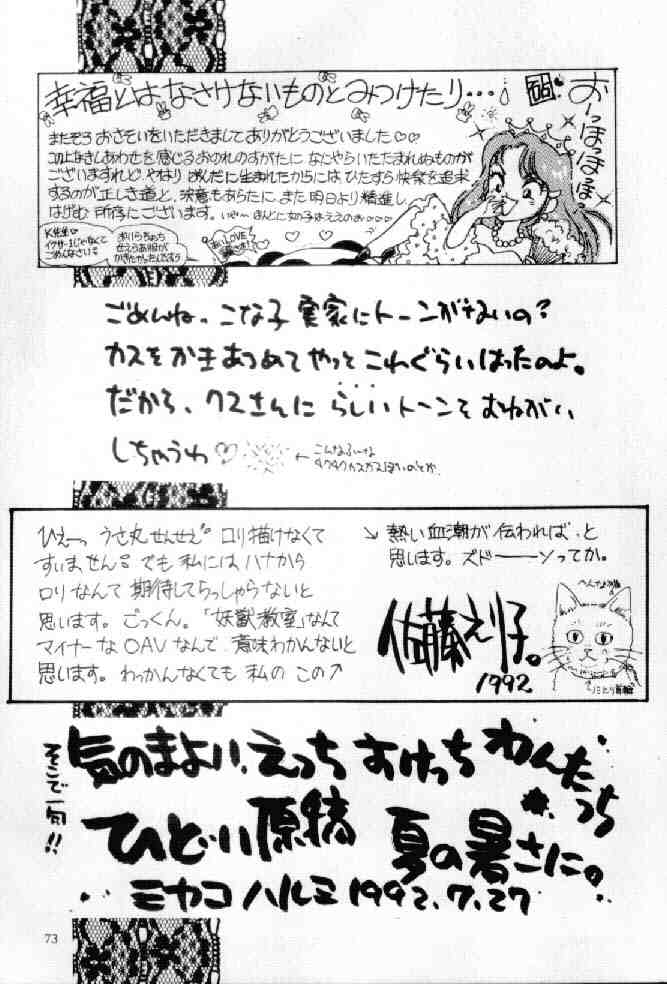 幸福とは、なさけないものとみつけたり…!
おーっほっほっほ
またぞろおさそいをいただきましてありがとうございました♡♡
このよなきしあわせを感じるおのれのすがたに なにやらいたたまれぬものが
ございますれど、やはり おんなに生まれたからには、ひたすら快楽を追求
するのが正しき道と、決意もあらたに、また明日より精進し
はげむ所存にございます。いやーほんとに女の子はええのお○○○○
K先生♡
イクサー1じゃなくて
ごめんなさい♡
おいらちゃっち
せえらあ服が
かきたかったんですう
LOVE
ごめんね、こな子 実家にトーンがないの?
カスをかきあつめてやっとこれぐらいはったのよ。
だから、クスさんに らしいトーンをおねがい
しちゃうわ♡
←こんなふーな
ひえーっ うさ丸せんせえ。ロリ描けなくて
すいません。でも私にはハナから
ロリなんて期待してらっしゃらないと
思います。ごっくん。「妖獣教室」なんて
マイナーなOAVなんで、意味わかんないと
思います。わっかんなくても私のこの↗
↘熱い血潮が伝われば、と
思います。ズドーーンってか。
佐藤えり子。
1992
そこで一句!!
気のまよい、えっち すけっち わんたっち
ひどい原稿 夏の暑さに。
ミヤコハルミ 1992.7.27
73